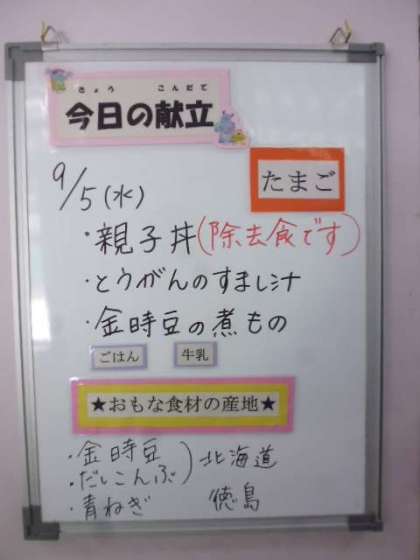 きょう こんだて
今日の献立
9/5(水)
たまご
・親子丼(除去食です)
・とうがんのすまし汁
・金時豆の煮もの
ごはん 牛乳
★おもな食材の産地★
・金時豆
・だしこんぶ ) 北海道
・青ねぎ 徳島